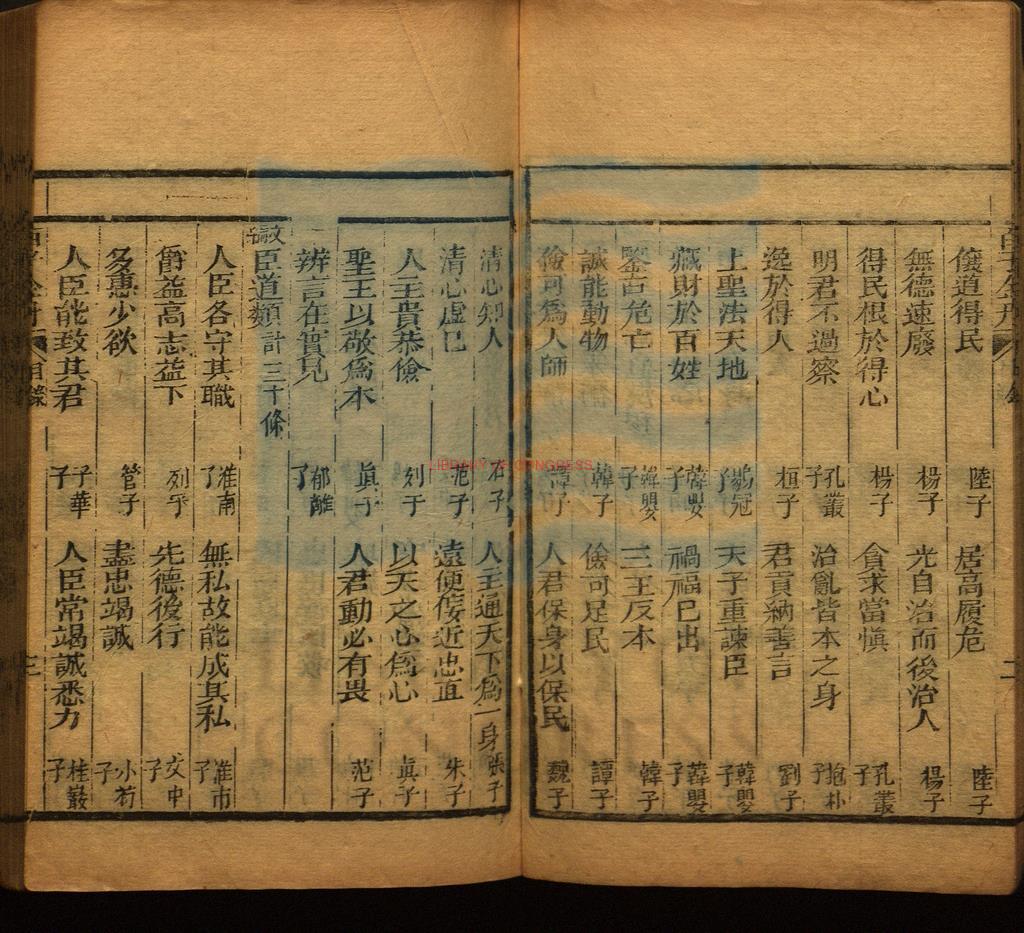 儀道得民 陸子 居高履危 陸子
無德速廢 楊子 光自治而後治人 楊子
得民根於得心 楊子 貪求當愼 孔叢子
明君不過察 孔叢子 治亂皆本之身 抱朴子
逸於得人 桓子 君貢納善言 劉子
上聖法天地 鶡冠子 天子重諫臣 韓嬰子
藏財於百姓 韓嬰子 禍福已出 韓嬰子
鑒古危亡 韓嬰子 三王反本 韓子
誠能動物 韓子 儉可足民 譚子
儉可爲人師 譚子 人君保身以保民 魏子
清心知人 石子 人主通天下爲一身 張子
清心虛己 范子 遠便佞近忠直 朱子
人主貴恭儉 列子 以天之心爲心 眞子
聖王以敬爲本 眞子 人君動必有畏 范子
辨言在實見 郁離子
臣道類 計三十條
人臣各守其職 淮南子 無私故能成其私 淮南子
爵益高志益下 列子 先德後行 文中子
多惠少欲 管子 盡忠竭誠 小荀子
人臣能致其君 子華子 人臣常竭誠悉力 桂巖子
目錄
三
二
LIBRARY OF CONGRESS